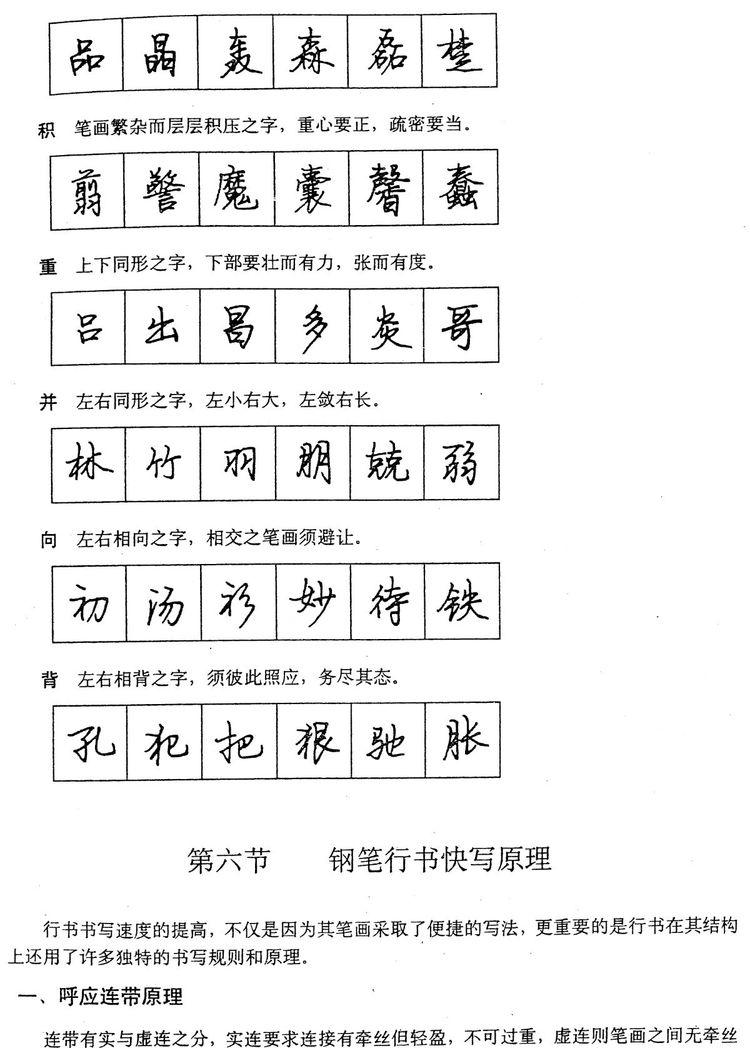 品 晶 轰 森 磊 楚
积 笔画繁杂而层层积压之字，重心要正，疏密要当。
翦 警 魔 囊 馨 蠢
重 上下同形之字，下部要壮而有力，张而有度。
吕 出 昌 多 炎 哥
并 左右同形之字，左小右大，左敛右长。
林 竹 羽 朋 兢 弱
向 左右相向之字，相交之笔画须避让。
初 汤 衫 妙 待 铁
背 左右相背之字，须彼此照应，务尽其态。
孔 犯 把 狠 驰 胀
第六节 钢笔行书快写原理
行书书写速度的提高，不仅是因为其笔画采取了便捷的写法，更重要的是行书在其结构
上还用了许多独特的书写规则和原理。
一、呼应连带原理
连带有实与虚连之分，实连要求连接有牵丝但轻盈，不可过重，虚连则笔画之间无牵丝